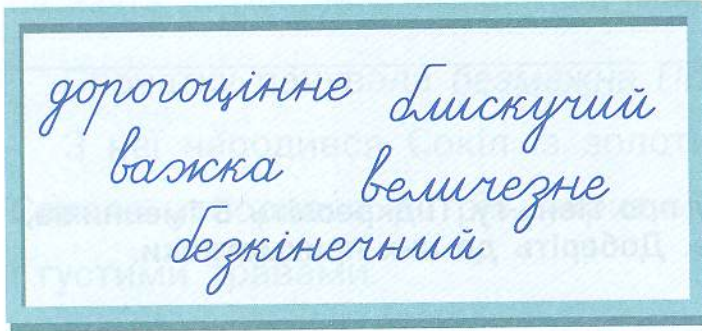 дорогоцінне блискучий
важка величезне
безкінечний